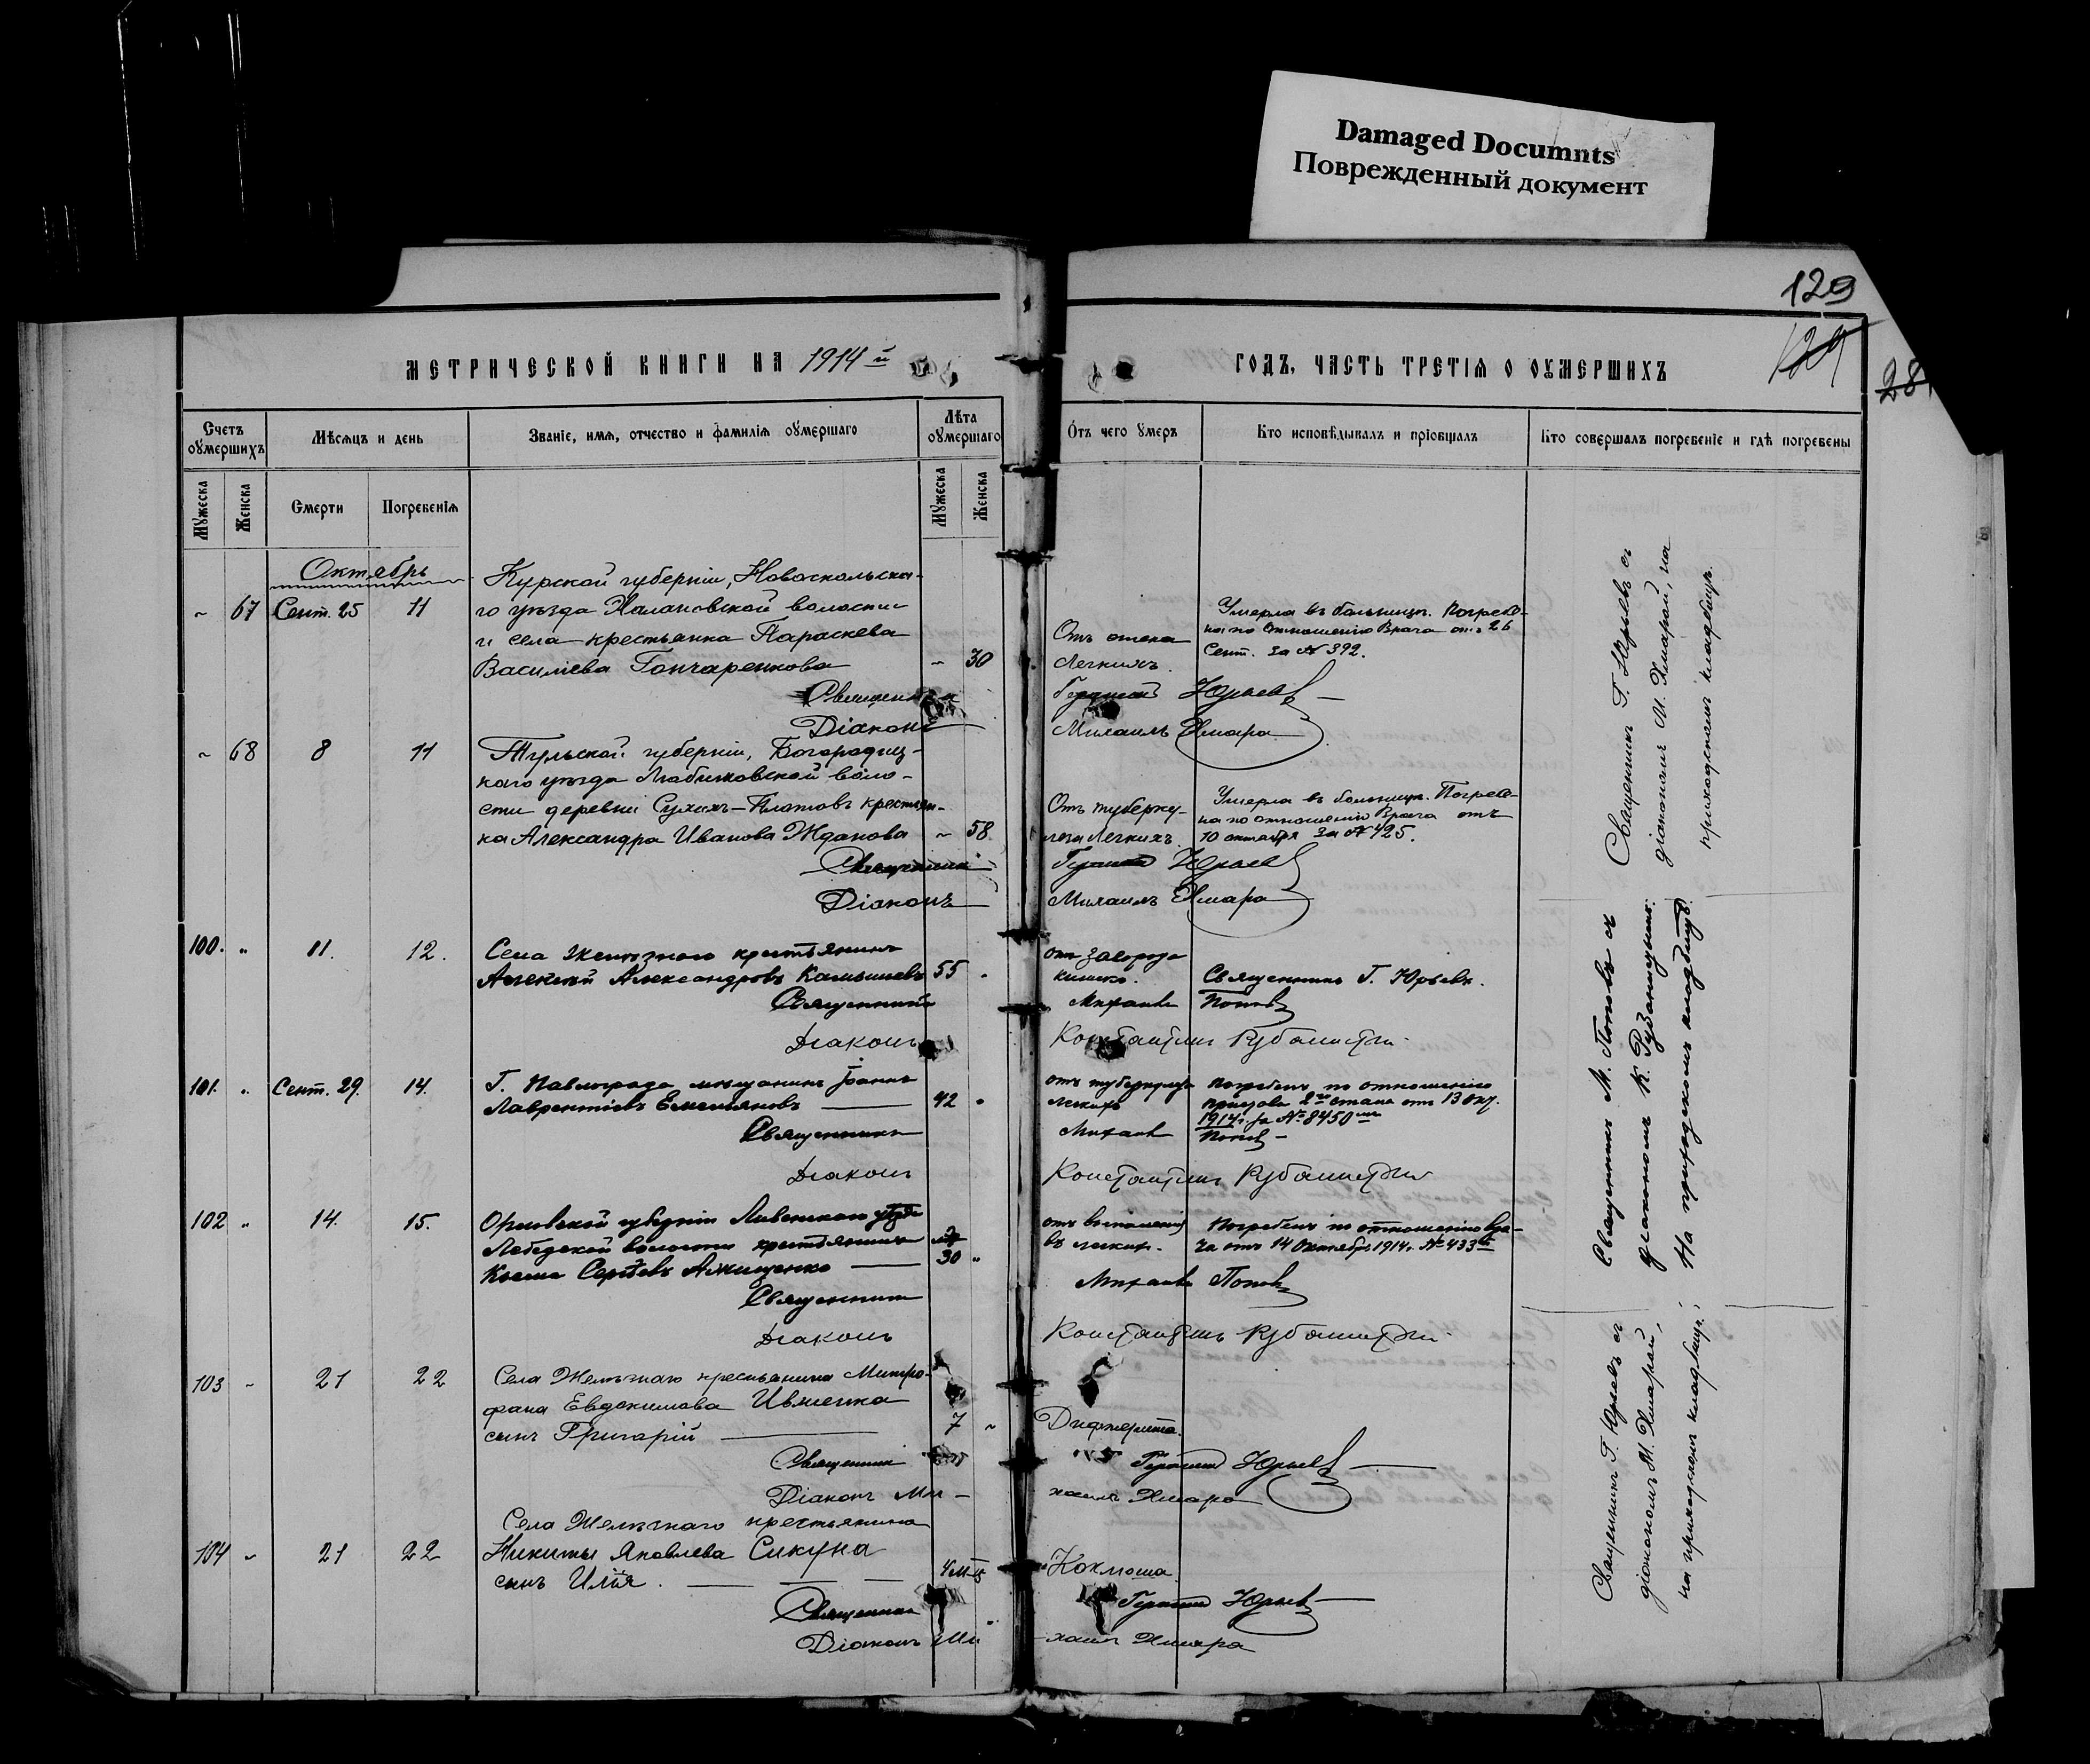 Damaged Documnts
Поврежденный документ
129
129
28
МЕТРИЧЕСКОЙ КНИГИ НА 1914 й
ГОДЪ, ЧАСТЬ ТРЕТІЯ О ОУМЕРШИХЪ
Счетъ оумершихъ
Мѣсяцъ и день
Званіе, имя, отчество и фамилія оумершаго
Лѣта оумершаго
Отъ чего умеръ
Кто исповѣдывалъ и пріобщалъ
Кто совершалъ погребеніе и гдѣ погребены
Мужеска
Женска
Смерти
Погребенія
Мужеска
Женска
Октябрь
Курской губерніи, Новооскольска-
~ 67 Сент. 25 11 го уѣзда Халановской волости
и села крестьянка Параскева
Василіева Гончаренкова ~ 30
Отъ отека
Легкихъ.
Умерла въ больницѣ. Погребе-
на по отношенію Врача отъ 26
Сент. за № 392.
Священникъ Герасимъ Юрьевъ
Діаконъ Михаилъ Хмара
~ 68 8 11 Тульской губерніи, Богородиц-
каго уѣзда волο-
сти деревни крестьян-
ка Александра Иванова Жданова ~ 58.
Отъ туберку-
леза Легкихъ.
Умерла въ больницѣ. Погребе-
на по отношенію Врача отъ
10 октября за № 425.
Священникъ Герасимъ Юрьевъ
Діаконъ Михаилъ Хмара
Священникъ Г. Юрьевъ съ
діакономъ М. Хмарой, на
приходскомъ кладбищѣ.
100. „ 11. 12. Села Желѣзнаго крестьянинъ
Алексѣй Александровъ Камышевъ 55 „
отъ заворота
кишекъ.
Священникъ Г. Юрьевъ.
Священникъ Михаилъ Поповъ
Діаконъ Константинъ
101. „ Сент. 29. 14. Г. Павлограда мѣщанинъ Іоаннъ
Лаврентіевъ Емельяновъ 42 „
отъ туберкулеза
легкихъ
Погребенъ по отношенію
пристава 2го стана отъ 13 окт.
1914г. за № 8450
Священникъ Михаилъ Поповъ
Діаконъ Константинъ
102 „ 14. 15. Орловской губерніи Ливенскаго уѣзда
волости крестьянинъ
Косма Сергѣевъ 30 „
отъ воспаленія
въ легкихъ.
Погребенъ по отношенію Вра-
ча отъ 14 Октября 1914г. № 433
Священникъ Михаилъ Поповъ
Діаконъ Константинъ
Священникъ М. Поповъ съ
діакономъ К.
На приходскомъ кладбищѣ.
103 ~ 21 22 Села Желѣзнаго крестьянина Митро-
фана Евдокимова Ивженка
сынъ Григорій 7 ~
Дифтерита.
Священникъ Герасимъ Юрьевъ
Діаконъ Ми-хаилъ Хмара
Села Желѣзнаго крестьянина
104 ~ 21 22 Никиты Яковлева Сикуна
сынъ Илія. 4 м-ц
Коклюша.
Священникъ Герасимъ Юрьевъ
Діаконъ Ми-хаилъ Хмара
Священникъ Г. Юрьевъ съ
діакономъ М. Хмарой,
на приходскомъ кладбищѣ.